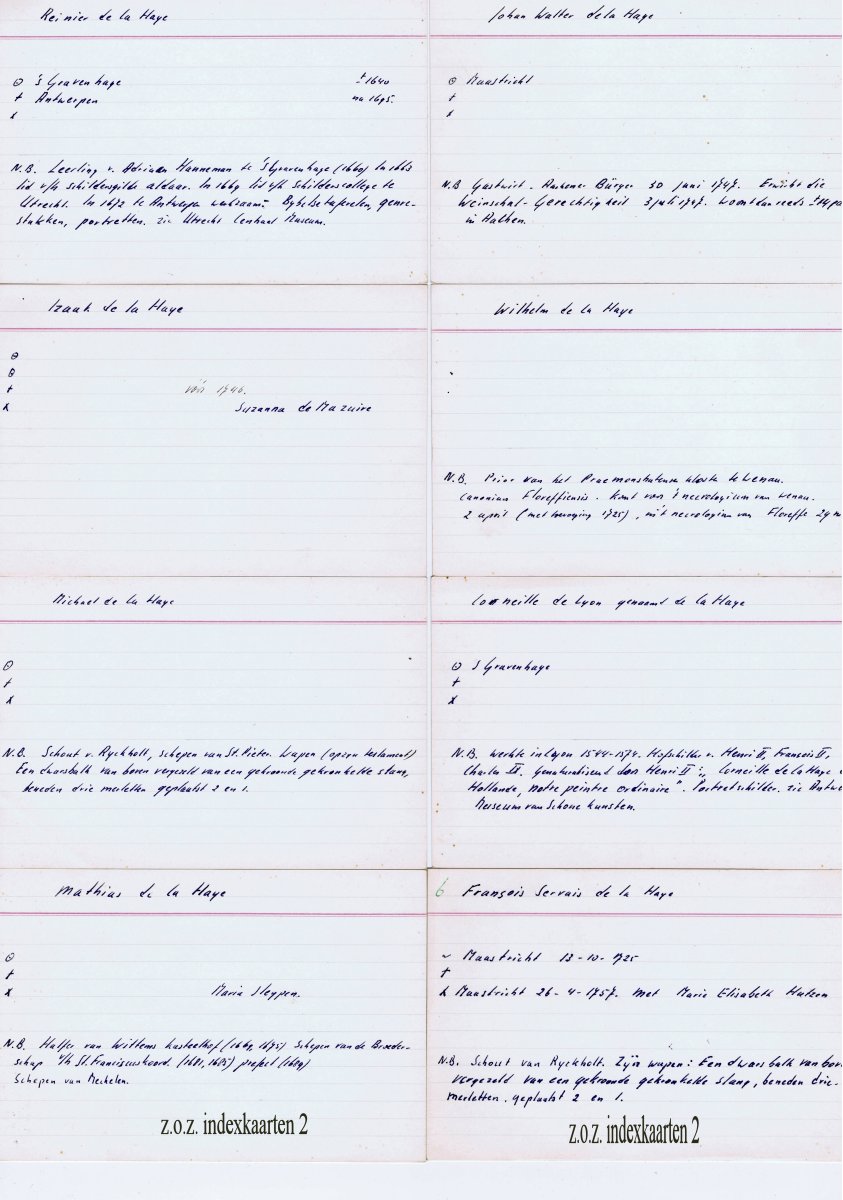 Reinier de la Haye
⊙ 's Gravenhage ± 1640
† Antwerpen na 1695.
x
N.B. Leerling v. Adriaan Hanneman te 's Gravenhage (1660) In 1663
lid v/h schildersgilde aldaar. In 1669 lid v/h Schilderscollege te
Utrecht. In 1672 te Antwerpen werkzaam: Bybelsetaferelen, genre-
stukken, portretten. zie Utrecht Centraal Museum.
Johan Walter de la Haye
⊙ Maastricht
†
x
N.B Gastwirt - Aachener Bürger 30 juni 1747. Erwirbt die
Weinschal-Gerechtigkeit 3 juli 1747. woont dan reeds ± 14
in Aachen.
Izaak de la Haye
⊙
⊙
† vóór 1746.
x Suzanna de Mazuire
Wilhelm de la Haye
N.B. Prior van het Praemonstratenser klooster te Wenau.
Canonicus Floreffiensis. Komt voor 't necrologium van Wenau.
2 april (met toevoeging 1725), in 't necrologium van Floreffe 29
Michael de la Haye
⊙
†
x
N.B. Schout v. Ryckholt, schepen van St. Pieter. Wapen (op zyn testament)
Een dwarsbalk van boven vergezeld van een gekroonde gekronkelde slang,
beneden drie merletten geplaatst 2 en 1.
Corneille de Lyon genaamt de la Haye
⊙ S Gravenhage
†
x
N.B. werkte in Lyon 1544-1574. Hofschilder v. Henri II, François II,
Charles IX. Genaturaliseerd door Henri II: „Corneille de la Haye
Hollande, notre peintre ordinaire". Portretschilder. zie Antwe
Museum van Schone Kunsten.
Mathias de la Haye
⊙
†
x Maria Sleypen.
N.B. Halfer van Wittems kasteelhof (1669, 1675) Schepen van de Broeder-
schap v/h St. Franciscuskoord. (1681, 1685) prefect (1689)
Schepen van Mechelen.
z.o.z. indexkaarten 2
6 François Servais de la Haye
~ Maastricht 13-10-1725
†
x Maastricht 26-4-1757. met Marie Elisabeth Hutzen
N.B. Schout van Ryckholt. Zijn wapen: Een dwarsbalk van bov
vergezeld van een gekroonde gekronkelde slang, beneden drie
merletten, geplaatst 2 en 1.
z.o.z. indexkaarten 2